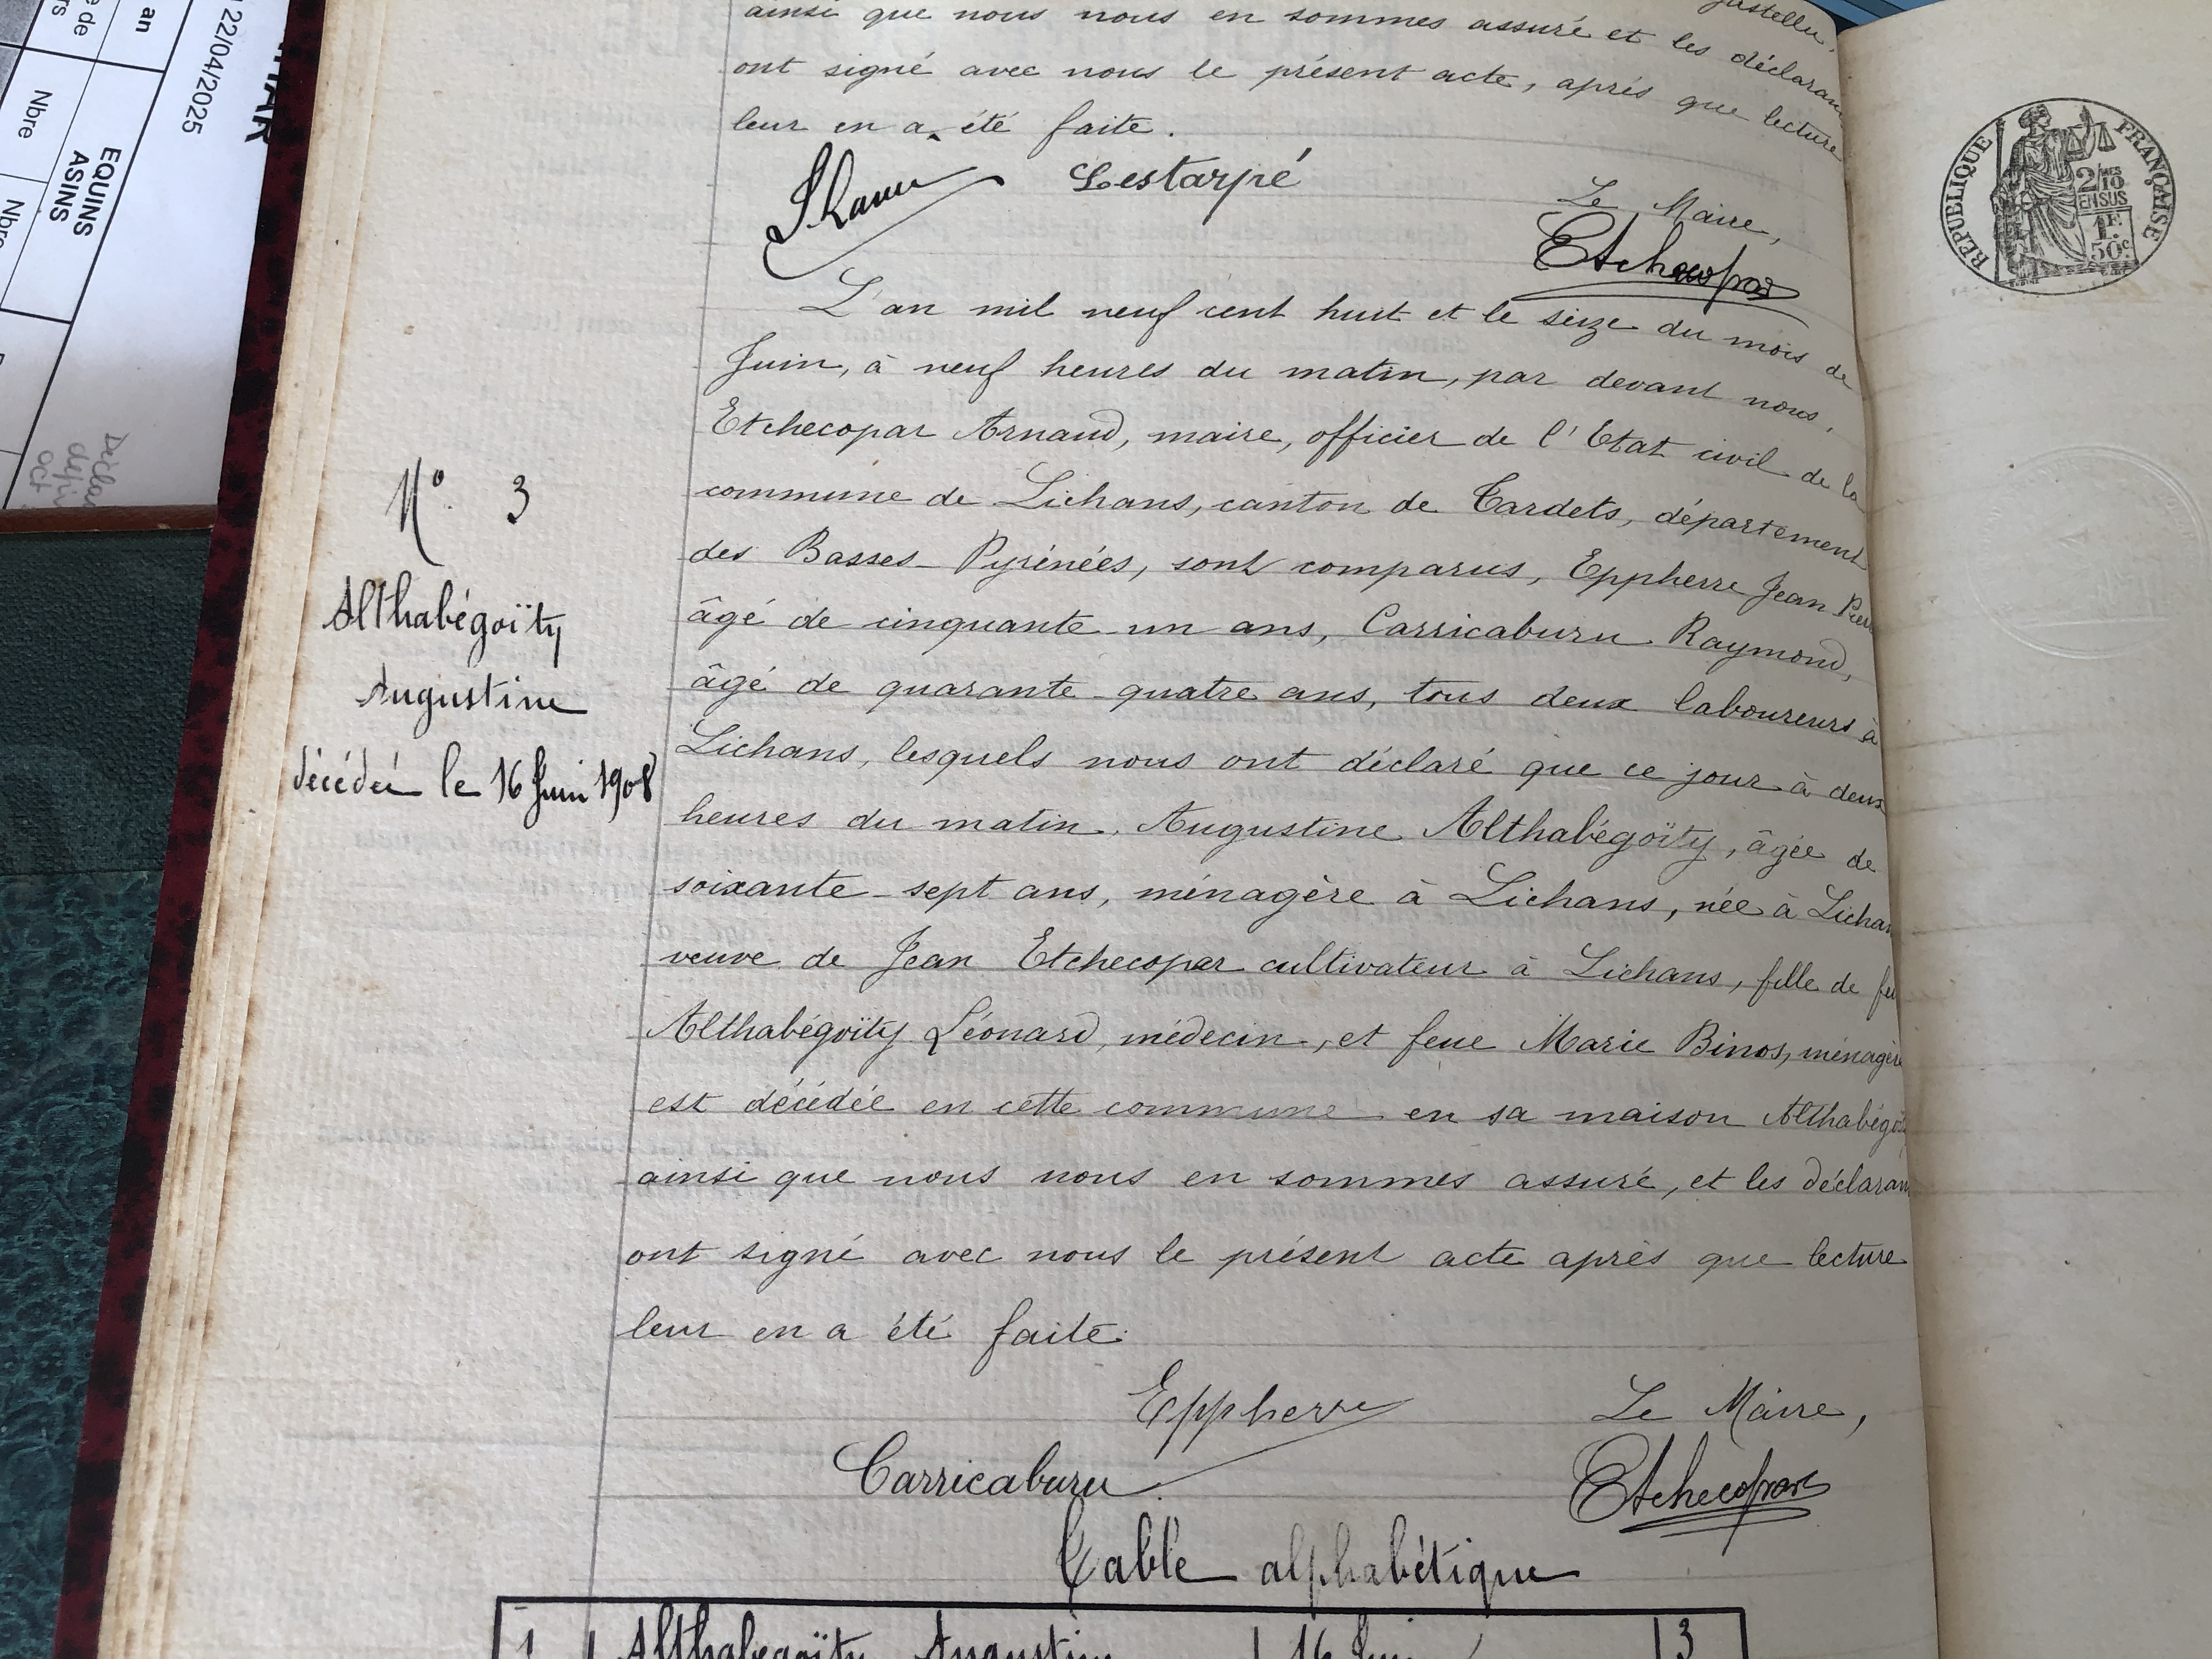 ainsi que nous nous en sommes assuré et les déclaran
ont signé avec nous le présent acte, après que lecture
leur en a été faite.
Lestarpé
Le Maire,
Etchecopar
L'an mil neuf cent huit et le seize du mois de
Juin, à neuf heures du matin, par devant nous,
Etchecopar Arnaud, maire, officier de l'Etat civil de la
commune de Lichans, canton de Tardets, département
des Basses-Pyrénées, sont comparus, Eppherre Jean Pierre
âgé de cinquante-un ans, Carricaburu Raymond,
âgé de quarante-quatre ans, tous deux laboureurs à
Lichans, lesquels nous ont déclaré que ce jour à deux
heures du matin, Augustine Althabégoïty, âgée de
soixante-sept ans, ménagère à Lichans, née à Lichan
veuve de Jean Etchecopar cultivateur à Lichans, fille de feu
Althabégoïty Léonard, médecin, et feue Marie Binos, ménagère
est décédée en cette commune en sa maison Althabégoï
ainsi que nous nous en sommes assuré, et les déclaran
ont signé avec nous le présent acte après que lecture
leur en a été faite.
Eppherre
Le Maire,
Carricaburu
Etchecopar
Table alphabétique
1 Althabégoïty Augustine 16 Juin 3
N° 3
Althabégoïty
Augustine
décédée le 16 Juin 1908
RÉPUBLIQUE FRANÇAISE
2/10 MES
EN SUS
1F.
50c.
22/04/2025
an
de
Nbre
Nbre
EQUINS
ASINS